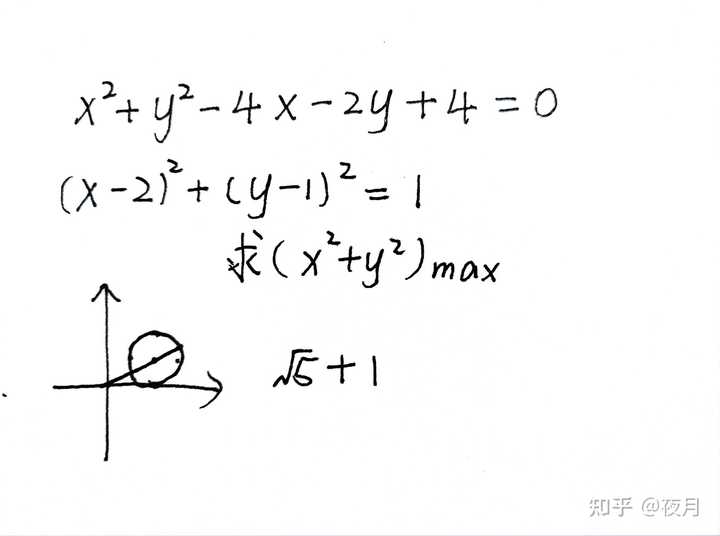 x²+y²-4x-2y+4=0
(x-2)²+(y-1)²=1
求(x²+y²)max
√5+1
知乎 @夜月